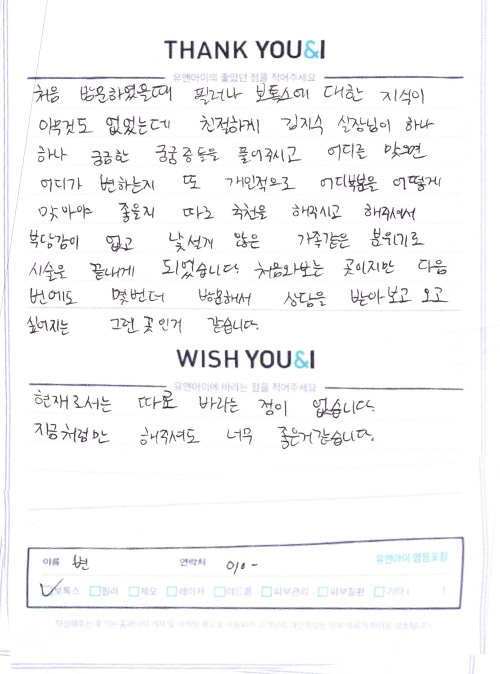 THANK YOU&I
유앤아이의 좋았던 점을 적어주세요
처음 방문하였을때 필러나 보톡스에 대한 지식이
아무것도 없었는데 친절하게 김지수 실장님이 하나
하나 궁금한 궁궁증들을 풀어주시고 어디를 맞으면
어디가 변하는지 또 개인적으로 어디부분을 어떻게
맞아야 좋을지 따로 추천을 해주시고 해주셔서
부담감이 없고 낯설게 않은 가족같은 분위기로
시술을 끝내게 되었습니다. 처음와보는 곳이지만 다음
번에도 몇번더 방문해서 상담을 받아보고 오고
싶어지는 그런곳인거 같습니다.
WISH YOU&I
유앤아이에 바라는 점을 적어주세요
현재로서는 따로 바라는 점이 없습니다.
지금처럼만 해주셔도 너무 좋은거같습니다.
이름 변 연락처 010- 유앤아이 영등포점
보톡스 필러 제모 레이저 여드름 피부관리 피부질환 기타 ( )